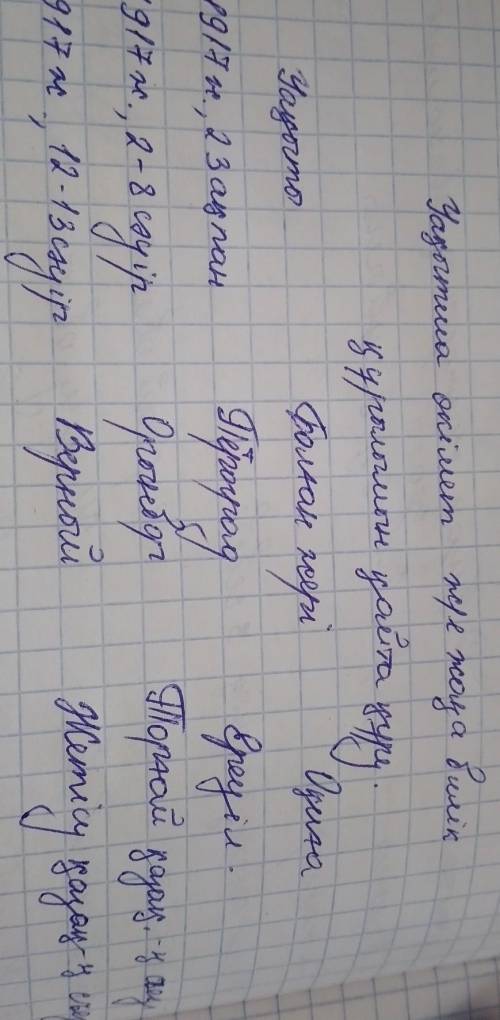 Уақытша өкімет және жаңа билік
құрылымын қайта құру.
Уақыты Болған жері Оқиға
1917 ж., 23 ақпан Петроград Ереуіл.
1917 ж., 2-8 сәуір Орынбор Торғай қазақ.-ң
917 ж., 12-13 сәуір Верный Жетісу қазақ-ң